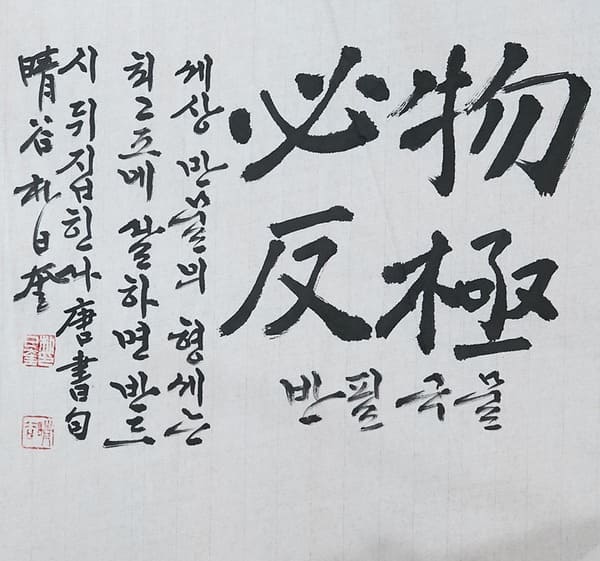 物極
必反
물극필반
세상 만물의 형세는
최고조에 달하면 반드
시 뒤집힌다 唐書句
晴谷 朴日奎